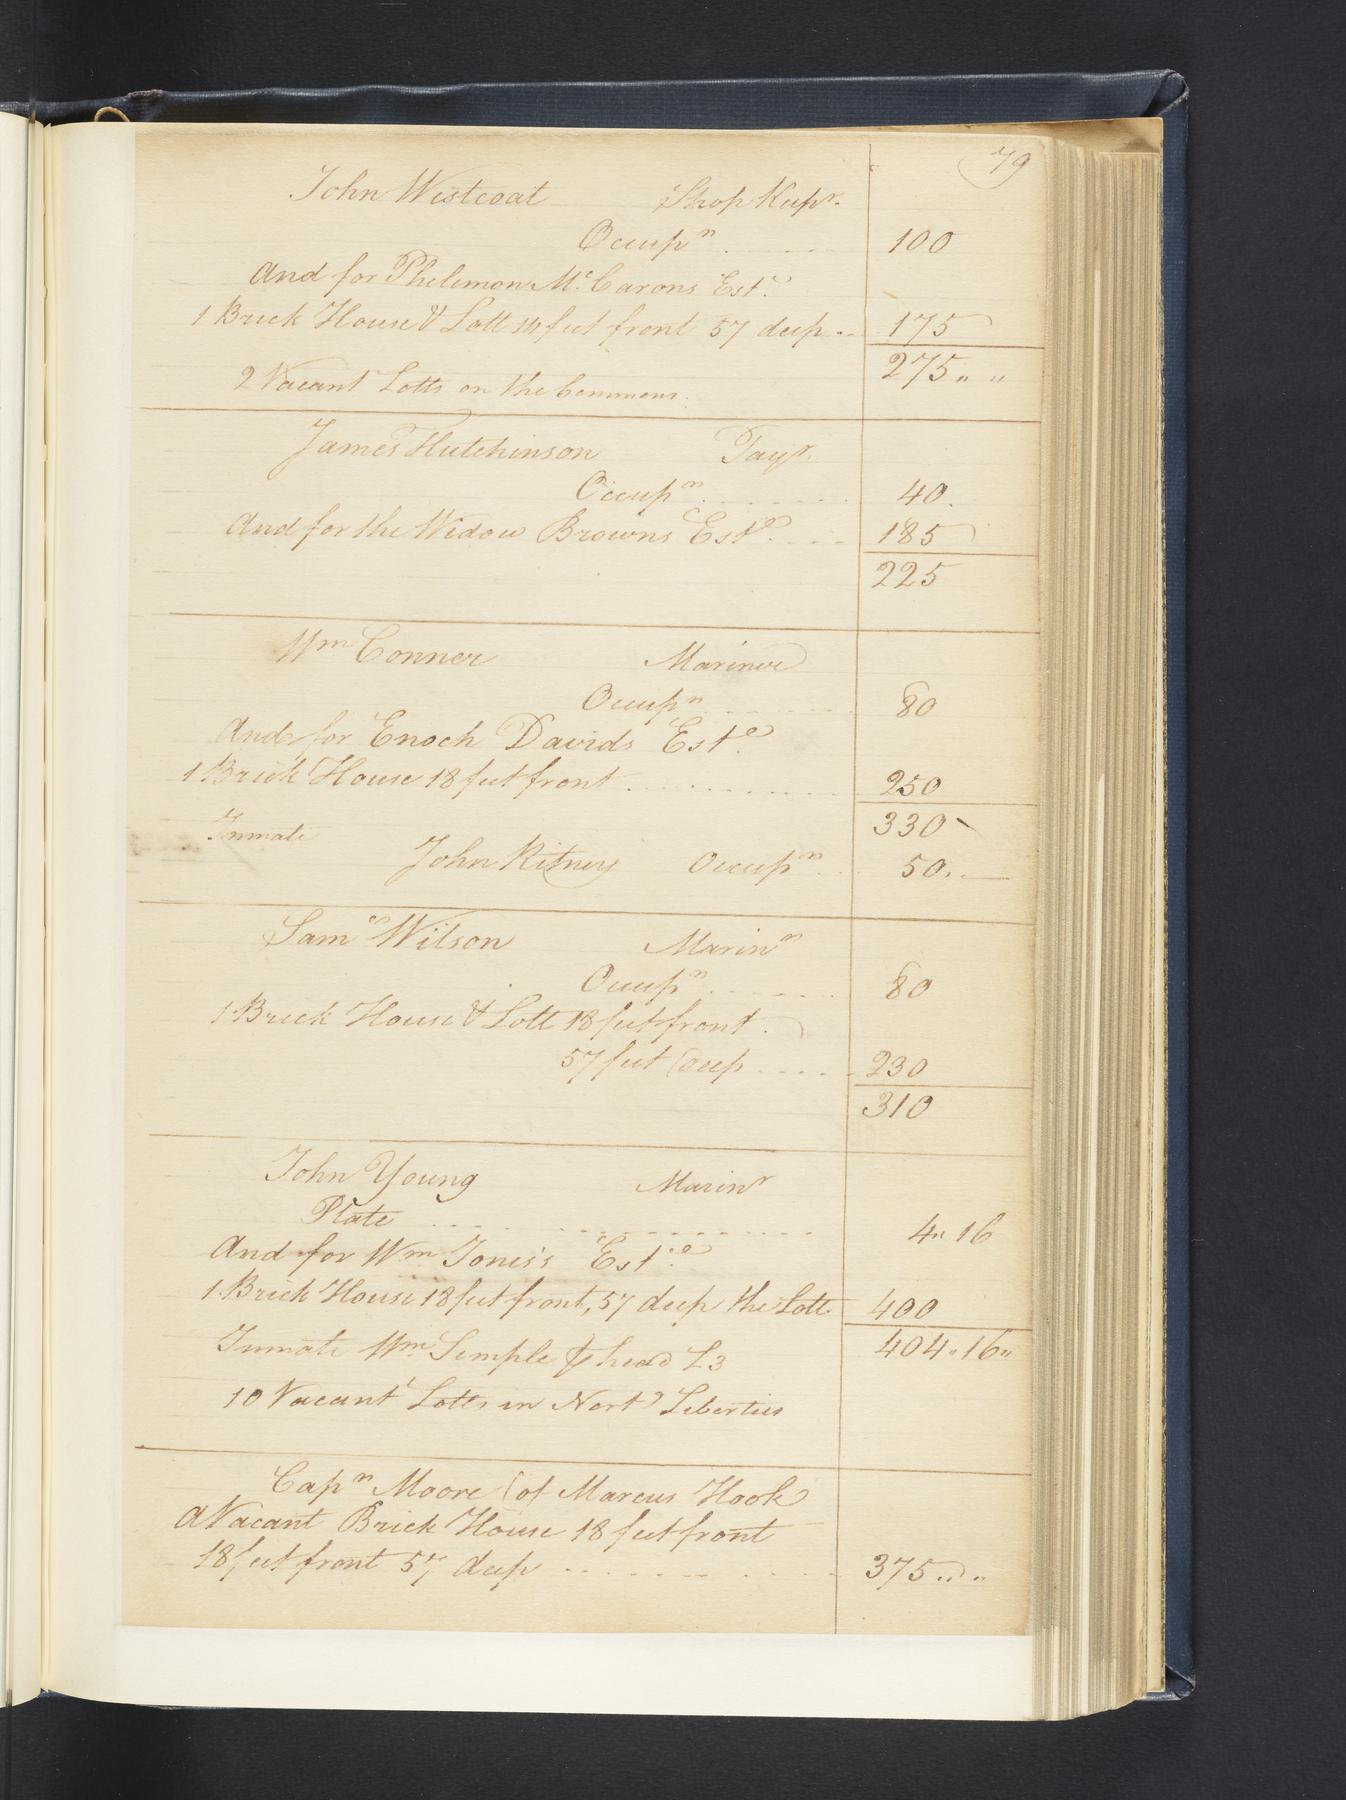 79
John Westcoat Shop Keepr.
Occupn ...... 100
And for Philemon Mc. Carons Este.
1 Brick House & Lott 14 feet front 57 deep .. 175
275 „ „
2 Vacant Lotts on the Commons.
James Hutchinson Taylr.
Occupn ...... 40.
And for the Widow Browns Este. .... 185
225
Wm Conner Mariner
Occupn ...... 80
And for Enoch Davids Este.
1 Brick House 18 feet front ............ 250
330
Inmate
John Ritney Occupn ... 50. —
Saml Wilson Marinr
Occupn ...... 80
1 Brick House & Lott 18 feet front.
57 feet deep ..... 230
310
John Young Marinr
Plate ............... 4 „ 16
And for Wm Jones's Este.
1 Brick House 18 feet front, 57 deep the Lott 400
404 „ 16 „
Inmate Wm. Semple p head £3
10 Vacant Lotts in Nortn Liberties
Capn Moore (of Marcus Hook
A Vacant Brick House 18 feet front
18 feet front 57 deep .......... 375 „ „